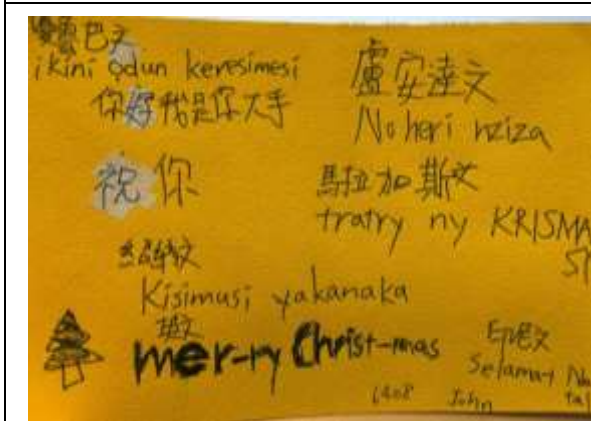 巴文
ikini odun keresimesi
你好我是你大手
祝你
盧安達文
Noheri nziza
馬拉加斯文
tratry ny KRISMA
紹納文
Kisimusi yakanaka
英文
mer-ry Christ-mas
印尼文
Selamat Na
tal
1408 John